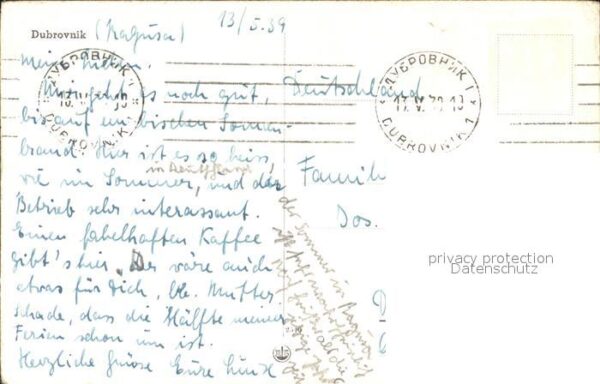 Dubrovnik (Ragusa) 13/5.39
ДУБРОВНИК 1
DUBROVNIK 1
ДУБРОВНИК 1
DUBROVNIK 1
Meine Lieben.
Mir geht es noch gut,
bis auf ein bischen Sonnen-
brand. Hier ist es so heiss,
wie im Sommer, und der
in Deutschland
Betrieb sehr interessant.
Einen fabelhaften Kaffee
gibt's hier. Der wäre auch
etwas für Dich, lb. Mutter.
Schade, dass die Hälfte meiner
Ferien schon um ist.
Herzliche Grüsse Eure
Deutschland
Familie
Dos.
der Sommer in
privacy protection
Datenschutz